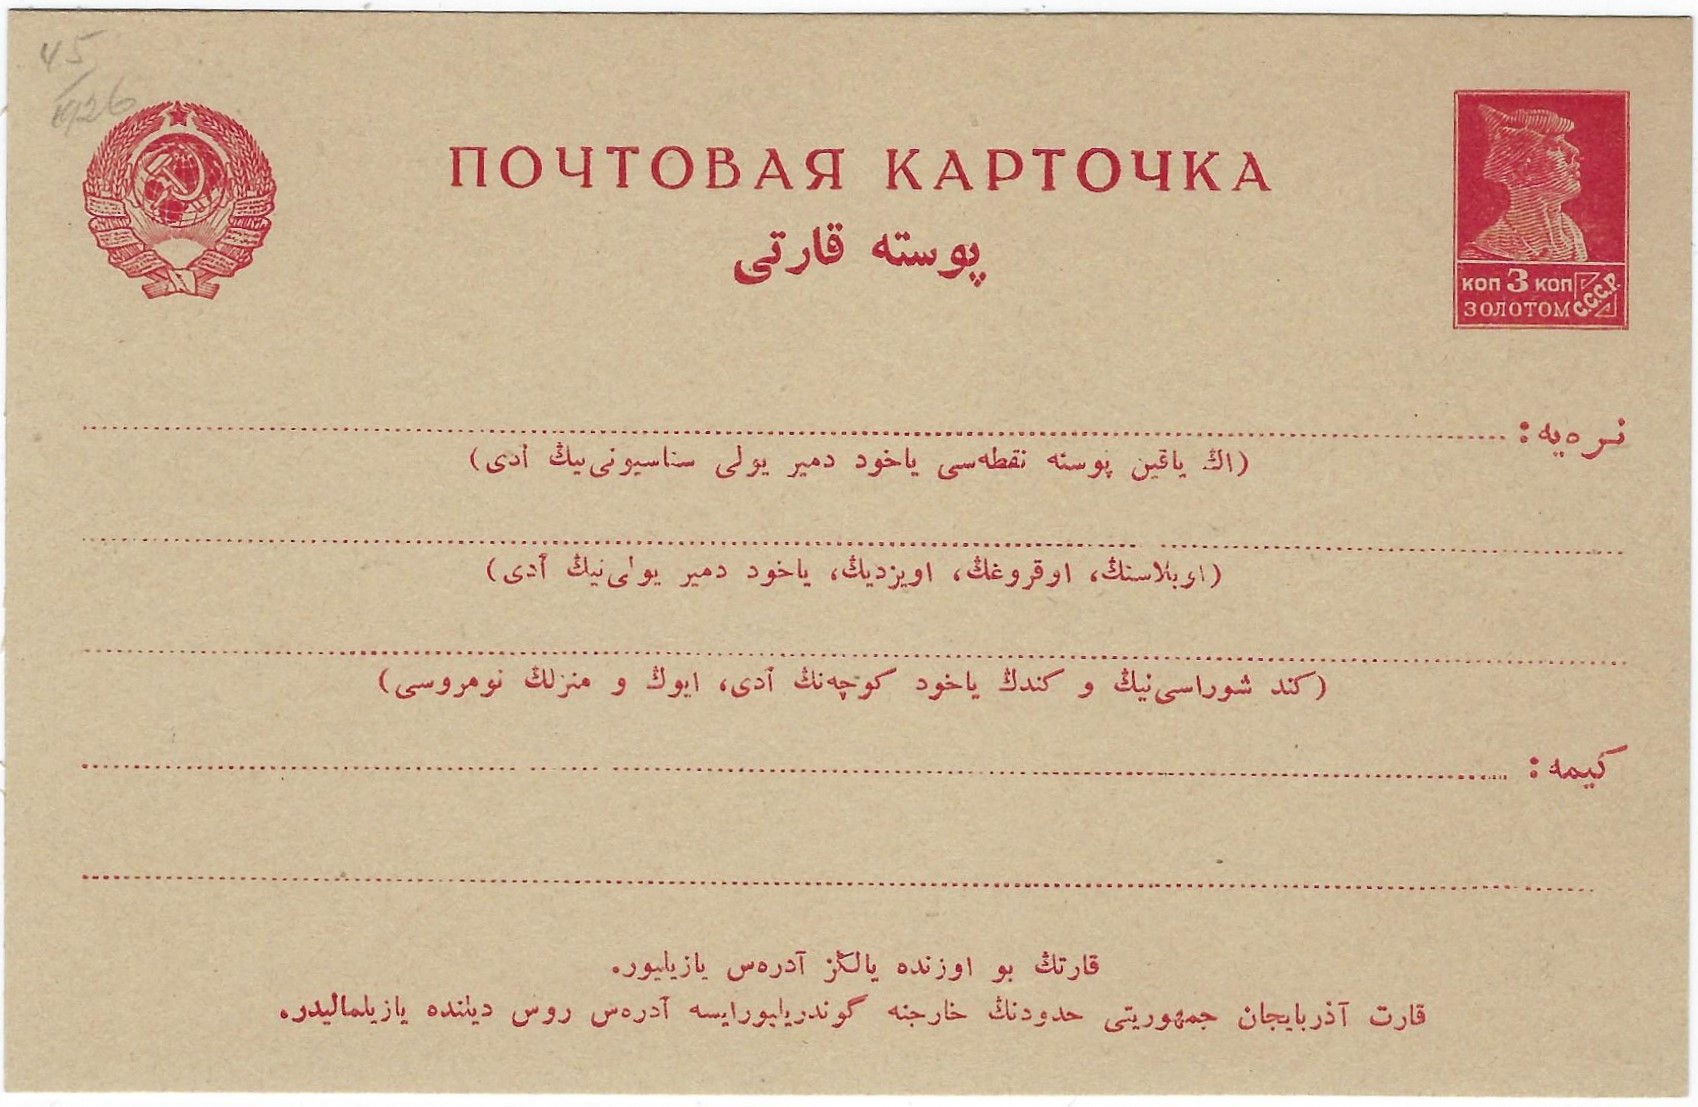 45
1926
ПОЧТОВАЯ КАРТОЧКА
پوسته قارتی
КОП 3 КОП
ЗОЛОТОМ С.С.С.Р.
نره‌یه:
(اڭ یاقین پوسته نقطه‌سی یاخود دمیر یولی ستاسیونی‌نیڭ آدی)
(اوبلاستڭ، اوقروغڭ، اویزدیڭ، یاخود دمیر یولی‌نیڭ آدی)
(کند شوراسی‌نیڭ و کندڭ یاخود کوچه‌نڭ آدی، ایوڭ و منزلڭ نومروسی)
کیمه:
قارتڭ بو اوزنده یالڭز آدره‌س یازیلیور.
قارت آذربایجان جمهوریتی حدودنڭ خارجنه گوندریلیورایسه آدره‌س روس دیلنده یازیلمالیدر.